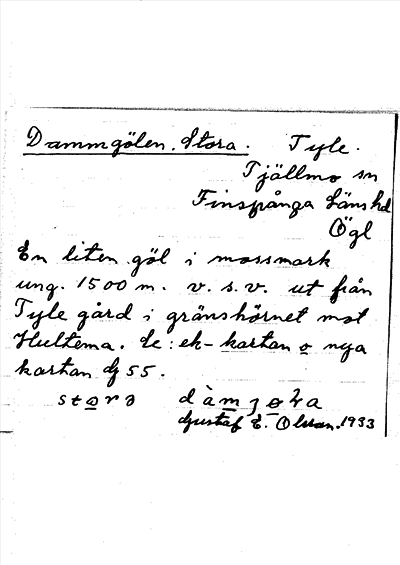 Dammgölen. Stora. Tyle.
Tjällmo sn
Finspånga Länshd
Ögl
En liten göl i mossmark
ung. 1500 m. v. s. v. ut från
Tyle gård i gränshörnet mot
Hultema. Se: ek-kartan o nya
kartan 55.
storə dàmȷɵɫa
Gustaf E. Olsson. 1933